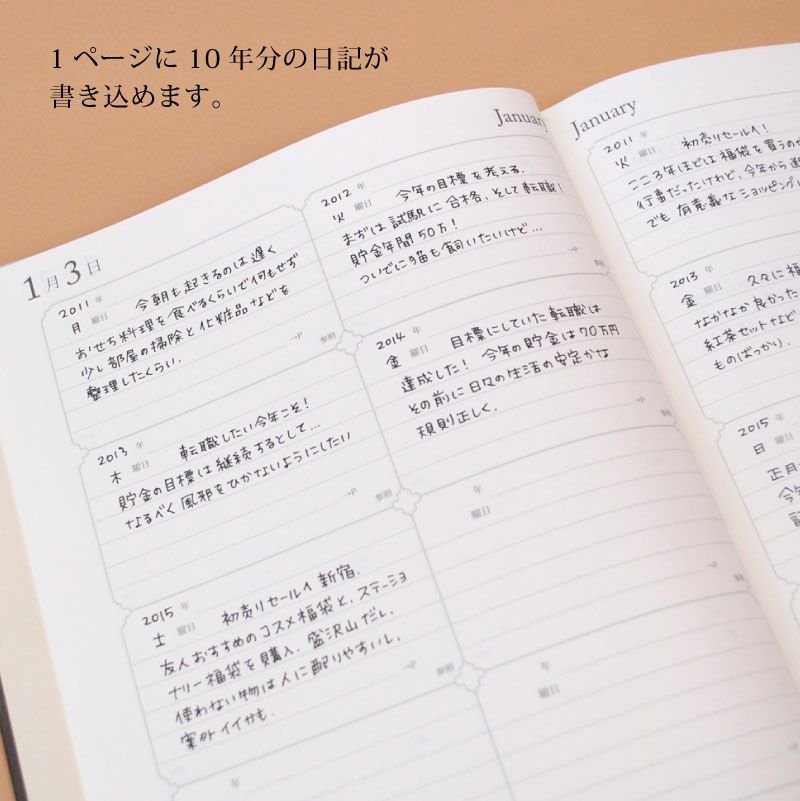 1ページに 10年分の日記が
書き込めます。
January
1月3日
2011年
月曜日
今朝も起きるのは遅く
おせち料理を食べるくらいで何もせず
少し部屋の掃除と化粧品などを
整理したくらい.
→P 参照
2012年
火曜日
今年の目標を考える.
まずは試験に合格、そして転職!
貯金年間50万!
ついでに猫も飼いたいけど…
→P 参照
2013年
木曜日
転職したい今年こそ!
貯金の目標は継続するとして…
なるべく風邪をひかないようにしたい
→P 参照
2014年
金曜日
目標にしていた転職は
達成した! 今年の貯金は70万円
その前に日々の生活の安定かな
規則正しく.
→P 参照
2015年
土曜日
初売りセールへ新宿.
友人おすすめのコスメ福袋と、ステーショ
ナリー福袋を購入. 盛沢山だし、
使わない物は人に配りやすいし、
案外イイかも.
→P 参照
年
曜日
→P
年
曜日
年
January
2011年
火曜日
初売りセールへ!
ここ3年ほどは福袋を買うのが
行事だったけれど、今年から
でも有意義なショッピング
2013年
金曜日
久々に福
なかなか良かった
紅茶セットなど
ものばっかり.
2015年
日曜日
正月
今年